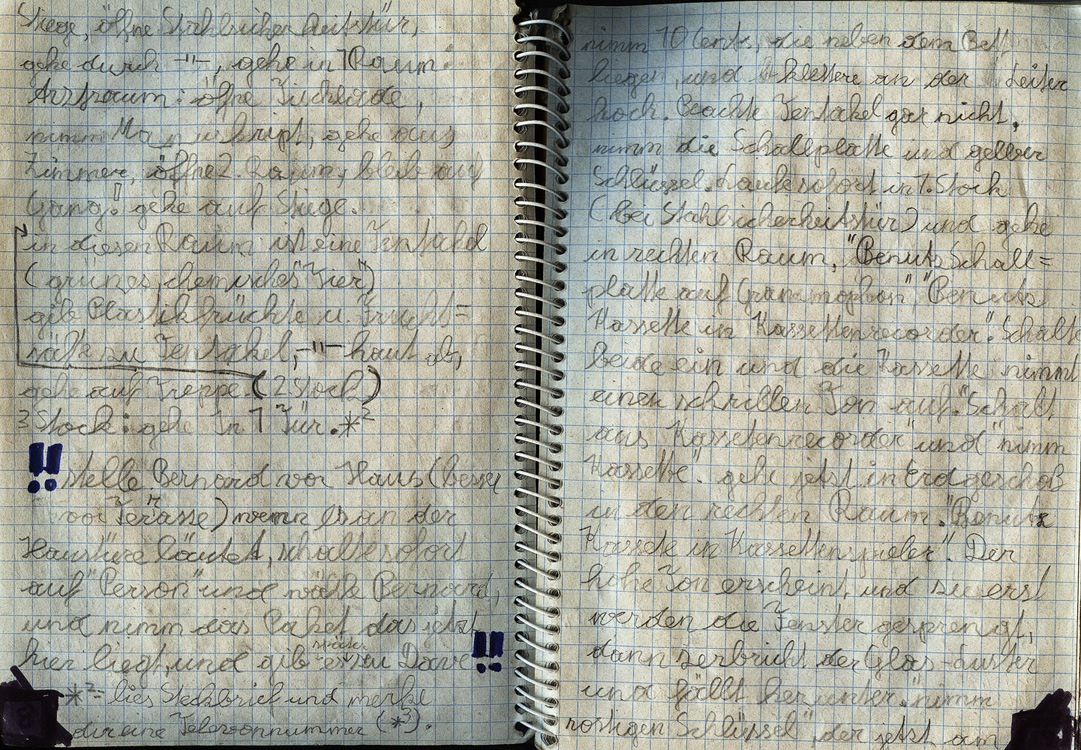 Stiege, öffne Stahlsicherheitstür,
gehe durch -"-, gehe in 1 Raum:
Arztraum: öffne Tischlade,
nimm Manuskript, gehe aus
Zimmer, öffne 2. Raum, bleib auf
Gang! gehe auf Stiege.
in diesen Raum ist eine Tentakel
(grünes, chemisches "Tier")
gib Plastikfrüchte u. Frucht=
säfte zu Tentakel, -"- haut ab,
gehe auf Treppe. (2 Stock)
3 Stock: gehe in 1 Tür. *²
!! stelle Bernard vor Haus (besser
vor Terasse) wenn es an der
Haustüre läutet, schalte sofort
auf "Person" und wähle Bernard,
und nimm das Paket, das jetzt
hier liegt, und gib es zu Dave !!
*² = lies Steckbrief und merke
dir eine Telefonnummer (*³).
nimm 10 Cents, die neben dem Bett
liegen, und klettere an der Leiter
hoch. Beachte Tentakel gar nicht,
nimm die Schallplatte und gelber
Schlüssel. Laufe sofort in 1. Stock
(bei Stahlsicherheitstür) und gehe
in rechten Raum, "Benutz Schall=
platte auf Grammophon" "Benutz
Kassette in Kassettenrecorder". Schalte
beide ein und die Kassette nimmt
einen schrillen Ton auf. "Schalt
aus Kassetenrecorder" und "nimm
Kassette". gehe jetzt in Erdgeschoß
in den rechten Raum. "Benutz
Kassete in Kassettenspieler". Der
hohe Ton erscheint, und zuerst
werden die Fenster gesprengt,
dann zerbricht der Glas-Luster
und fällt herunter. "nimm
rostigen Schlüssel", der jetzt am